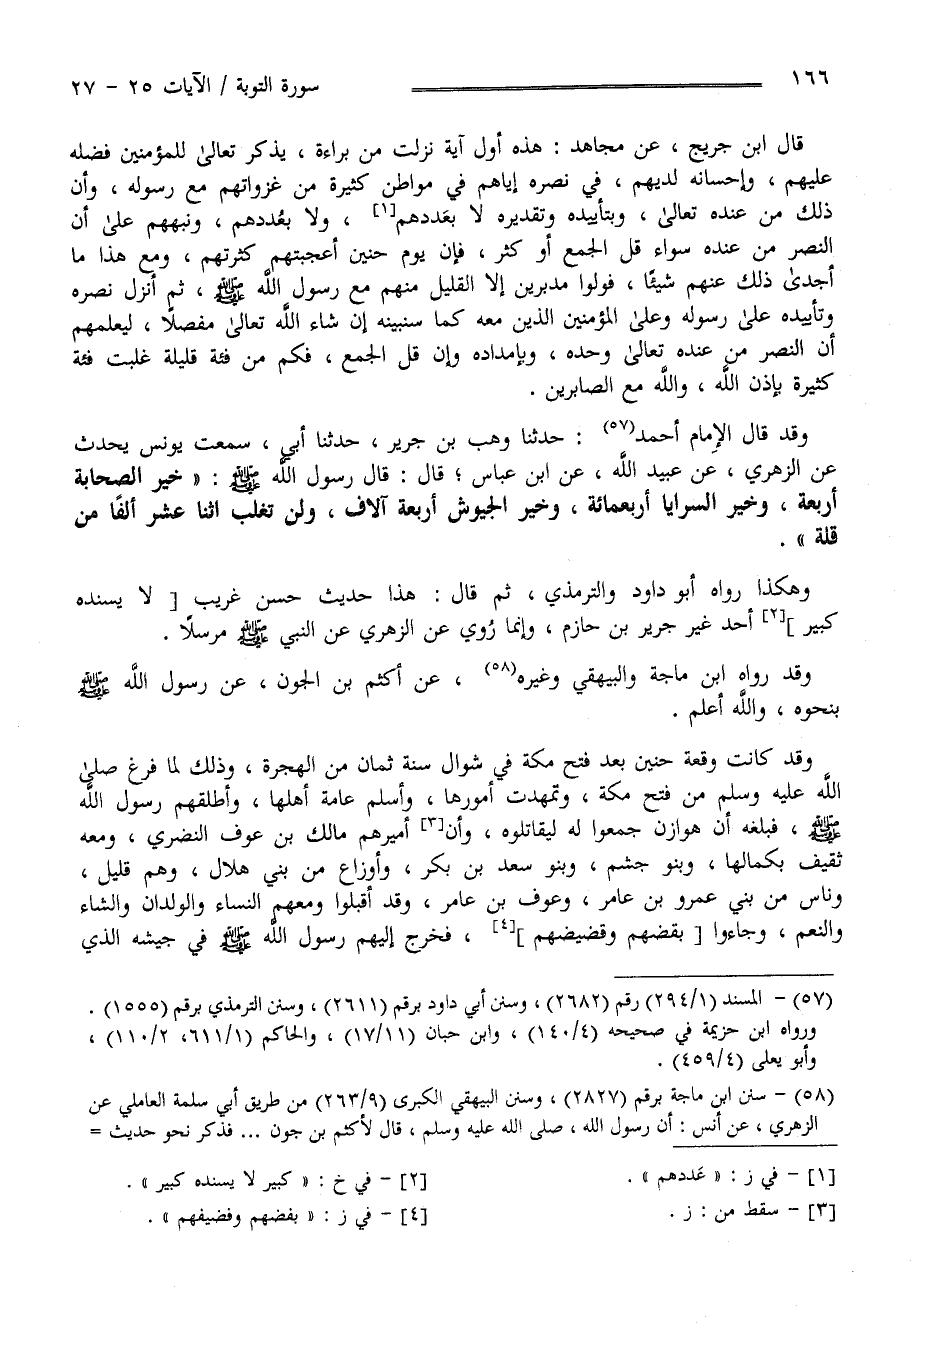 ١٦٦ سورة التوبة / الآيات ٢٥ - ٢٧
قال ابن جريج ، عن مجاهد : هذه أول آية نزلت من براءة ، يذكر تعالىٰ للمؤمنين فضله
عليهم ، وإحسانه لديهم ، في نصره إياهم في مواطن كثيرة من غزواتهم مع رسوله ، وأن
ذلك من عنده تعالىٰ ، وبتأييده وتقديره لا بعَددهم[١] ، ولا بعُددهم ، ونبههم علىٰ أن
النصر من عنده سواء قل الجمع أو كثر ، فإن يوم حنين أعجبتهم كثرتهم ، ومع هذا ما
أجدىٰ ذلك عنهم شيئًا ، فولوا مدبرين إلا القليل منهم مع رسول اللَّه ﷺ ، ثم أنزل نصره
وتأييده علىٰ رسوله وعلىٰ المؤمنين الذين معه كما سنبينه إن شاء اللَّه تعالىٰ مفصلًا ، ليعلمهم
أن النصر من عنده تعالىٰ وحده ، وبإمداده وإن قل الجمع ، فكم من فئة قليلة غلبت فئة
كثيرة بإذن اللَّه ، واللَّه مع الصابرين .
وقد قال الإمام أحمد(٥٧) : حدثنا وهب بن جرير ، حدثنا أبي ، سمعت يونس يحدث
عن الزهري ، عن عبيد اللَّه ، عن ابن عباس ؛ قال : قال رسول اللَّه ﷺ : « خير الصحابة
أربعة ، وخير السرايا أربعمائة ، وخير الجيوش أربعة آلاف ، ولن تغلب اثنا عشر ألفًا من
قلة » .
وهكذا رواه أبو داود والترمذي ، ثم قال : هذا حديث حسن غريب [ لا يسنده
كبير ][٢] أحد غير جرير بن حازم ، وإنما رُوي عن الزهري عن النبي ﷺ مرسلًا .
وقد رواه ابن ماجة والبيهقي وغيره(٥٨) ، عن أكثم بن الجون ، عن رسول اللَّه ﷺ
بنحوه ، واللَّه أعلم .
وقد كانت وقعة حنين بعد فتح مكة في شوال سنة ثمان من الهجرة ، وذلك لما فرغ صلىٰ
اللَّه عليه وسلم من فتح مكة ، وتمهدت أمورها ، وأسلم عامة أهلها ، وأطلقهم رسول اللَّه
ﷺ ، فبلغه أن هوازن جمعوا له ليقاتلوه ، وأن[٣] أميرهم مالك بن عوف النضري ، ومعه
ثقيف بكمالها ، وبنو جشم ، وبنو سعد بن بكر ، وأوزاع من بني هلال ، وهم قليل ،
وناس من بني عمرو بن عامر ، وعوف بن عامر ، وقد أقبلوا ومعهم النساء والولدان والشاء
والنعم ، وجاءوا [ بقضهم وقضيضهم ][٤] ، فخرج إليهم رسول اللَّه ﷺ في جيشه الذي
(٥٧) - المسند (٢٩٤/١) رقم (٢٦٨٢) ، وسنن أبي داود برقم (٢٦١١) ، وسنن الترمذي برقم (١٥٥٥) .
ورواه ابن خزيمة في صحيحه (١٤٠/٤) ، وابن حبان (١٧/١١) ، والحاكم (٦١١/١، ١١٠/٢) ،
وأبو يعلى (٤٥٩/٤) .
(٥٨) - سنن ابن ماجة برقم (٢٨٢٧) ، وسنن البيهقي الكبرى (٢٦٣/٩) من طريق أبي سلمة العاملي عن
الزهري ، عن أنس : أن رسول الله ، صلى الله عليه وسلم ، قال لأكثم بن جون ... فذكر نحو حديث =
[١] - في ز : « عَددهم » . [٢] - في خ : « كبير لا يسنده كبير » .
[٣] - سقط من : ز . [٤] - في ز : « بفضهم وفضيفهم » .